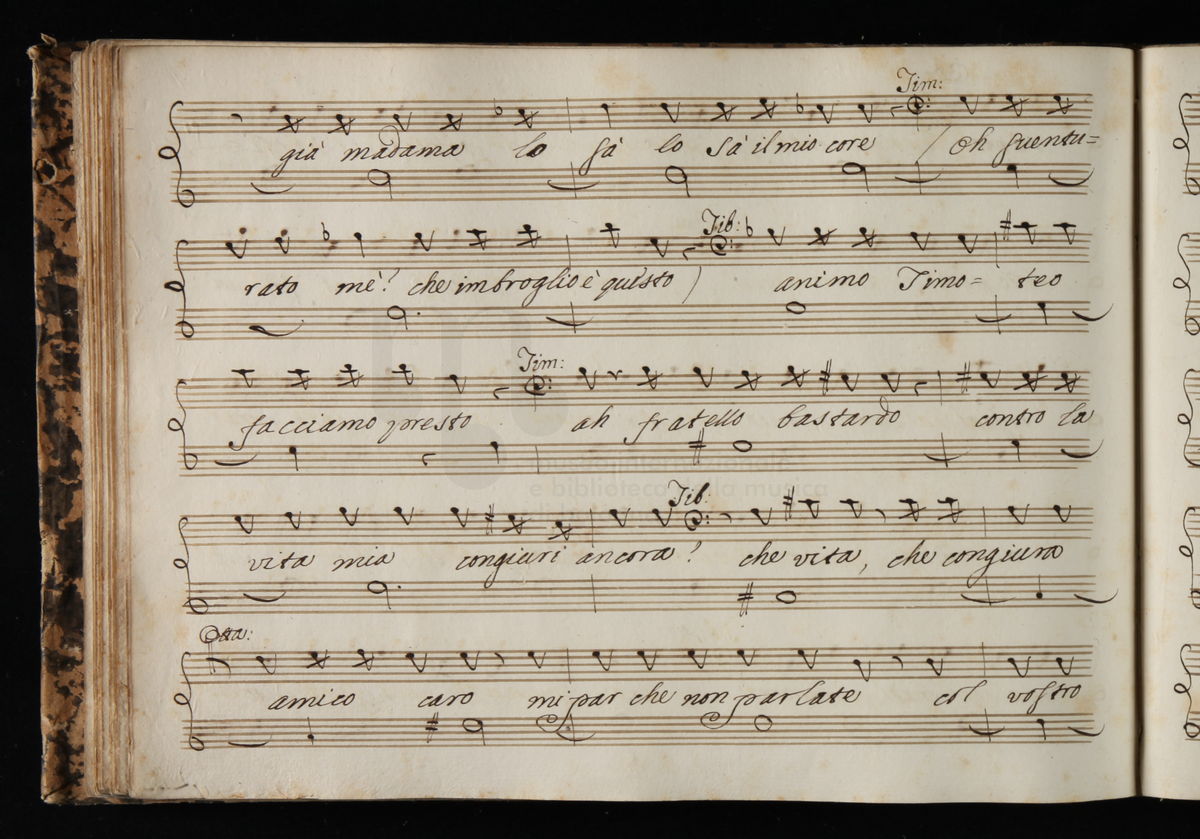 Tim:
già madama lo sà lo sà il mio core / Oh suentu=
Tib:
rato mè? che imbroglio è questo ) animo Timo= teo
Tim:
facciamo presto ah fratello bastardo contro la
Tib:
vita mia congiuri ancora? che vita, che congiura
amico caro mi par che non parlate col vostro